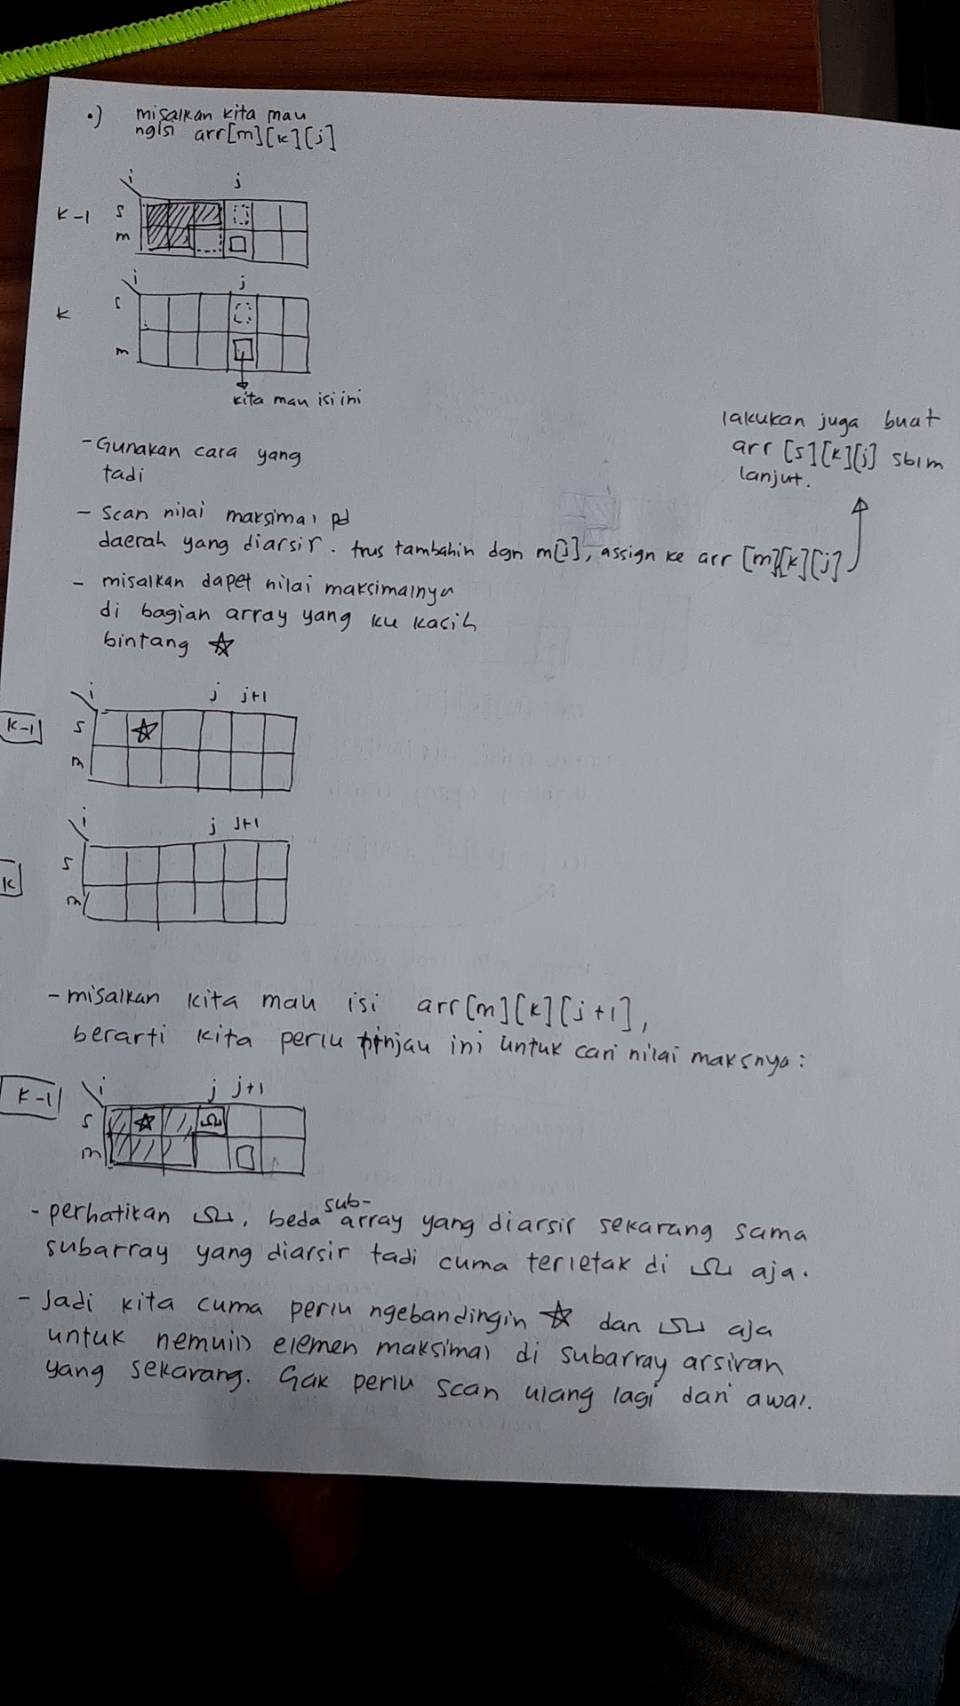 •) misalkan kita mau
ngisi arr[m][k][j]
i j
k-1 s
m
i j
k s
m
kita mau isi ini
lakukan juga buat
arr [s][k][j] sblm
lanjut.
- Gunakan cara yang
tadi
- scan nilai maksimal pd
daerah yang diarsir. trus tambahin dgn m[j], assign ke arr [m][k][j]
- misalkan dapet nilai maksimalnya
di bagian array yang ku kasih
bintang ☆
i j j+1
k-1 s ☆
m
i j j+1
k s
m
- misalkan kita mau isi arr[m][k][j+1],
berarti kita perlu tinjau ini untuk cari nilai maksnya:
k-1 i j j+1
s ☆ Ω
m
- perhatikan Ω, beda sub-array yang diarsir sekarang sama
subarray yang diarsir tadi cuma terletak di Ω aja.
- Jadi kita cuma perlu ngebandingin ☆ dan Ω aja
untuk nemuin elemen maksimal di subarray arsiran
yang sekarang. Gak perlu scan ulang lagi dari awal.